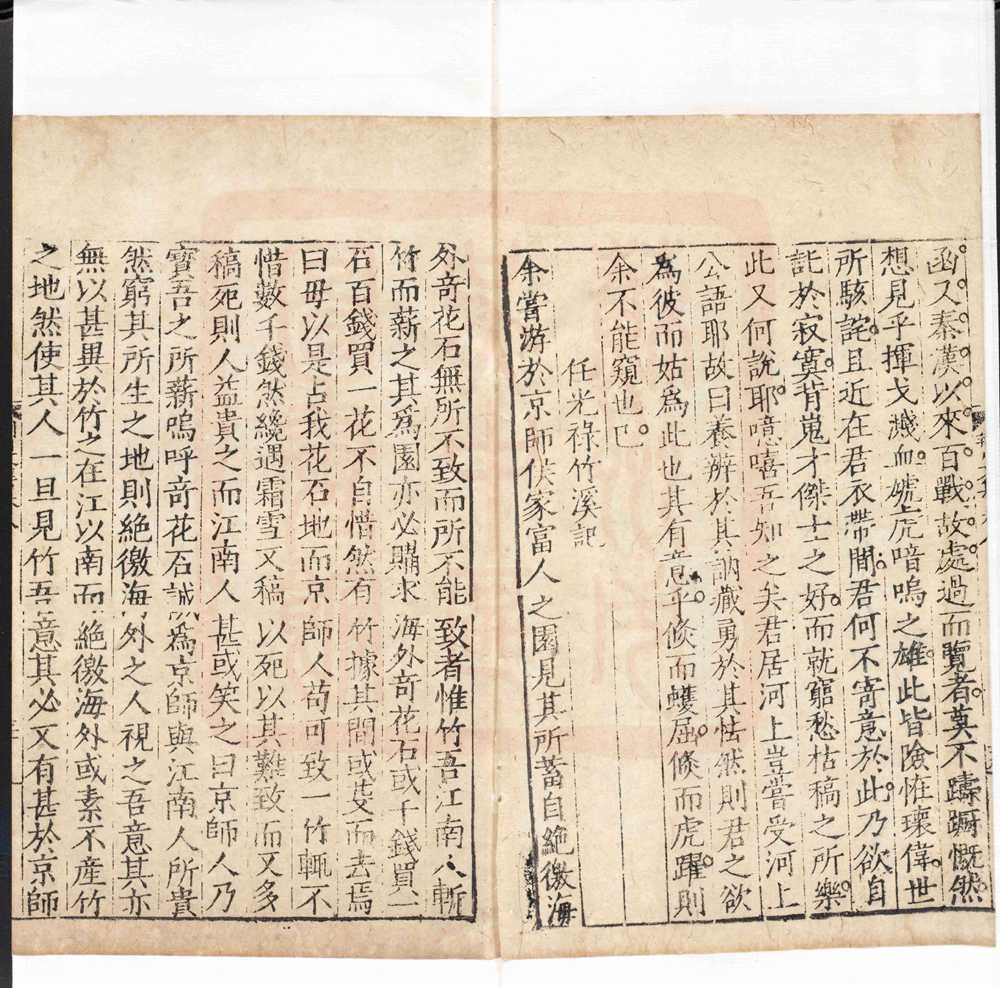 函又秦漢以來百戰故處過而覽者莫不躊躕慨然
想見乎揮戈濺血嘑虎喑嗚之雄此皆險恠瓌偉世
所駭詫且近在君衣帶間君何不寄意於此乃欲自
託於寂寞背嵬才傑士之好而就窮愁枯稿之所樂
此又何說耶噫嘻吾知之矣君居河上豈嘗受河上
公語耶故曰養辨於其訥藏勇於其怯然則君之欲
為彼而姑為此也其有意乎倏而蠖屈倏而虎躍則
余不能窺也已
任光祿竹溪記
余嘗游於京師侯家富人之園見其所蓄自絶徼海
外奇花石無所不致而所不能致者惟竹吾江南人斬
竹而薪之其爲園亦必購求海外奇花石或千錢買一
石百錢買一花不自惜然有竹據其間或芟而去焉
曰毋以是占我花石地而京師人苟可致一竹輒不
惜數千錢然纔遇霜雪又稿以死以其難致而又多
稿死則人益貴之而江南人甚或笑之曰京師人乃
寳吾之所薪嗚呼奇花石誠爲京師與江南人所貴
然窮其所生之地則絶徼海外之人視之吾意其亦
無以甚異於竹之在江以南而絶徼海外或素不産竹
之地然使其人一旦見竹吾意其必又有甚於京師